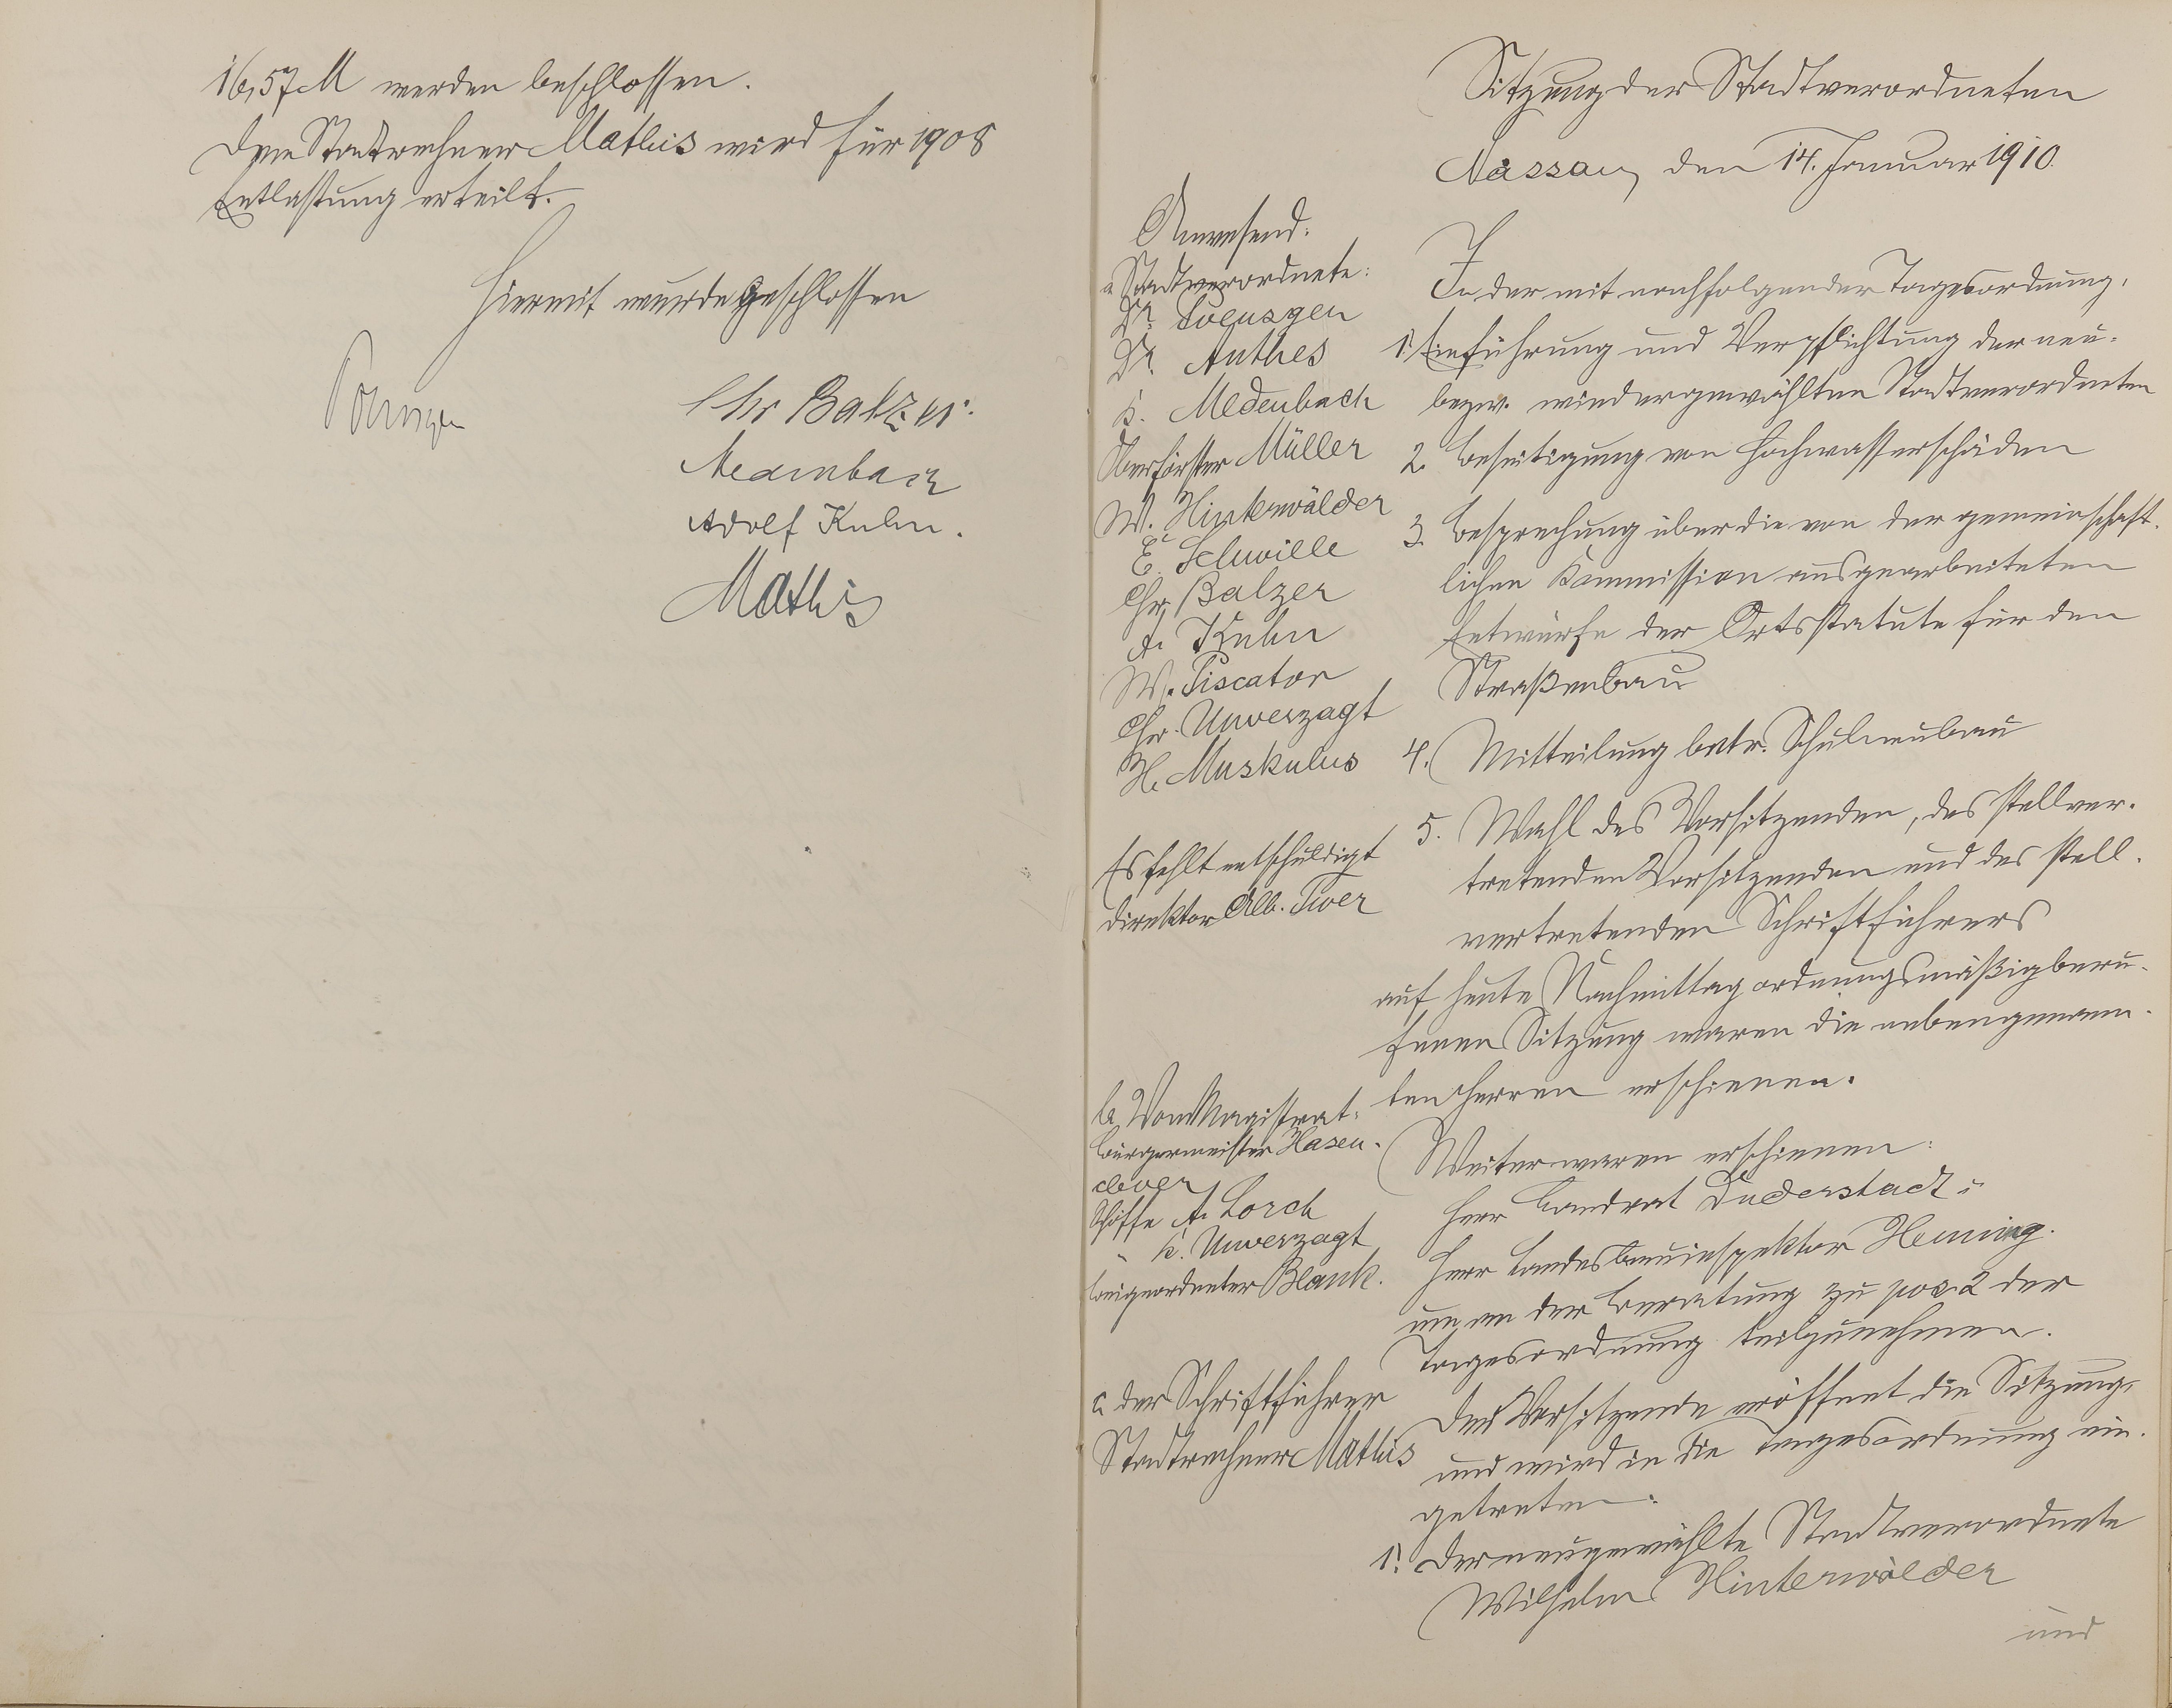 16,57 M werden beschlossen.
Dem Stadtrechner Mathis wird für 1908
Entlastung erteilt.
Hiermit wurde geschlossen
Chr Balzer.
Medenbach
Adolf Kuhn.
Mathis
Sitzung der Stadtverordneten
Nassau, den 14. Januar 1910.
Anwesend:
a Stadtverordnete:
Dr.
Dr. Anthes
K. Medenbach
Oberförster Müller
W. Hinterwälder
E. Schwille
Chr. Balzer
A. Kuhn
W. Piscator
Chr. Unverzagt
H. Muskulus
Es fehlt entschuldigt
Direktor Alb.
b. Vom Magistrat:
Bürgermeister Hasen-
clever
Schöffe A. Lorch
" K. Unverzagt
Beigeordneter Blank.
c. der Schriftführer
Stadtrechner Mathis
In der mit nachfolgender Tagesordnung,
1. Einführung und Verpflichtung der neu-
bezw. wiedergewählten Stadtverordneten
2. Beseitigung von Hochwasserschäden
3. Besprechung über die von der gemeinschaft-
lichen Kommission ausgearbeiteten
Entwürfe der Ortsstatute für den
Straßenbau
4. Mitteilung betr. Schulneubau
5. Wahl des Vorsitzenden, des stellver-
tretenden Vorsitzenden und des stell-
vertretenden Schriftführers
auf heute Nachmittag ordnungsmäßig beru-
fenen Sitzung waren die nebengenann-
ten Herren erschienen.
Weiter waren erschienen:
Herr Landrat Duderstadt u.
Herr Landesbauinspektor Henning.
um an der Beratung zu pos. 2 der
Tagesordnung teilzunehmen.
Der Vorsitzende eröffnet die Sitzung,
und wird in die Tagesordnung ein-
getreten.
1. Der neugewählte Stadtverordnete
Wilhelm Hinterwälder
und